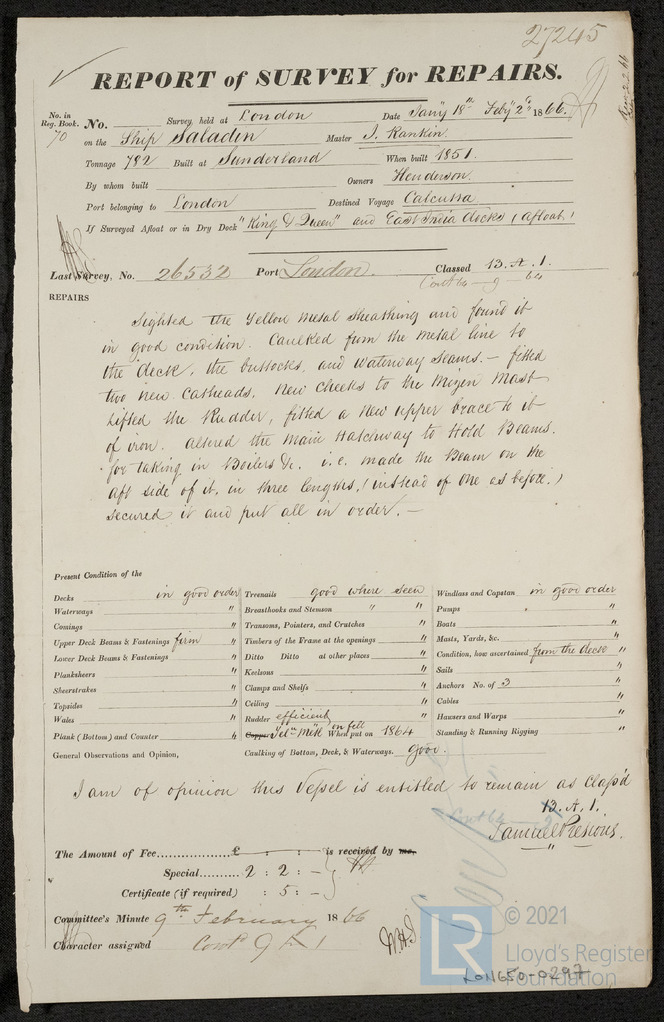 27245
REPORT of SURVEY for REPAIRS.
No. in Reg. Book. 70 No. Survey held at London Date Jany 18th Feby 2nd 1866.
on the Ship Saladin Master J. Rankin
Tonnage 782 Built at Sunderland When built 1851.
By whom built Owners Henderson
Port belonging to London Destined Voyage Calcutta
If Surveyed Afloat or in Dry Dock "King & Queen" and East India docks (afloat)
Last Survey, No. 26532 Port London. Classed 13. A. 1.
Contd 64 - 9 - 64
REPAIRS
Sighted the Yellow Metal Sheathing and found it
in good condition. Caulked from the metal line to
the deck, the buttocks, and Waterway Seams. - fitted
two new Catheads. New Cheeks to the Mizen Mast
Lifted the Rudder, fitted a New upper brace to it
of iron. altered the Main Hatchway to Hold Beams.
for taking in Boilers &c. i.e. made the Beam on the
aft side of it, in three lengths, (instead of one as before.)
secured it and put all in order. -
Present Condition of the
Decks in good order Treenails good where seen Windlass and Capstan in good order
Waterways " Breasthooks and Stemson " " Pumps " "
Comings " Transoms, Pointers, and Crutches " Boats "
Upper Deck Beams & Fastenings firm " Timbers of the Frame at the openings " Masts, Yards, &c. "
Lower Deck Beams & Fastenings " Ditto Ditto at other places " Condition, how ascertained from the deck "
Planksheers " Keelsons " Sails "
Sheerstrakes " Clamps and Shelfs " Anchors No. of 3 "
Topsides " Ceiling " Cables "
Wales " Rudder efficient Hausers and Warps "
Plank (Bottom) and Counter " Copper Yelw Metl on felt When put on 1864 Standing & Running Rigging "
General Observations and Opinion, Caulking of Bottom, Deck, & Waterways. Good.
I am of opinion this Vessel is entitled to remain as Class'd
13. A. 1.
Contd 64
Samuel Pretious.
The Amount of Fee £ : : is received by me.
Special 2 : 2 : -
Certificate (if required) : 5 : -
Committee's Minute 9th February 1866
Character assigned Contd
LR © 2021
Lloyd's Register
Foundation
LON650-0297